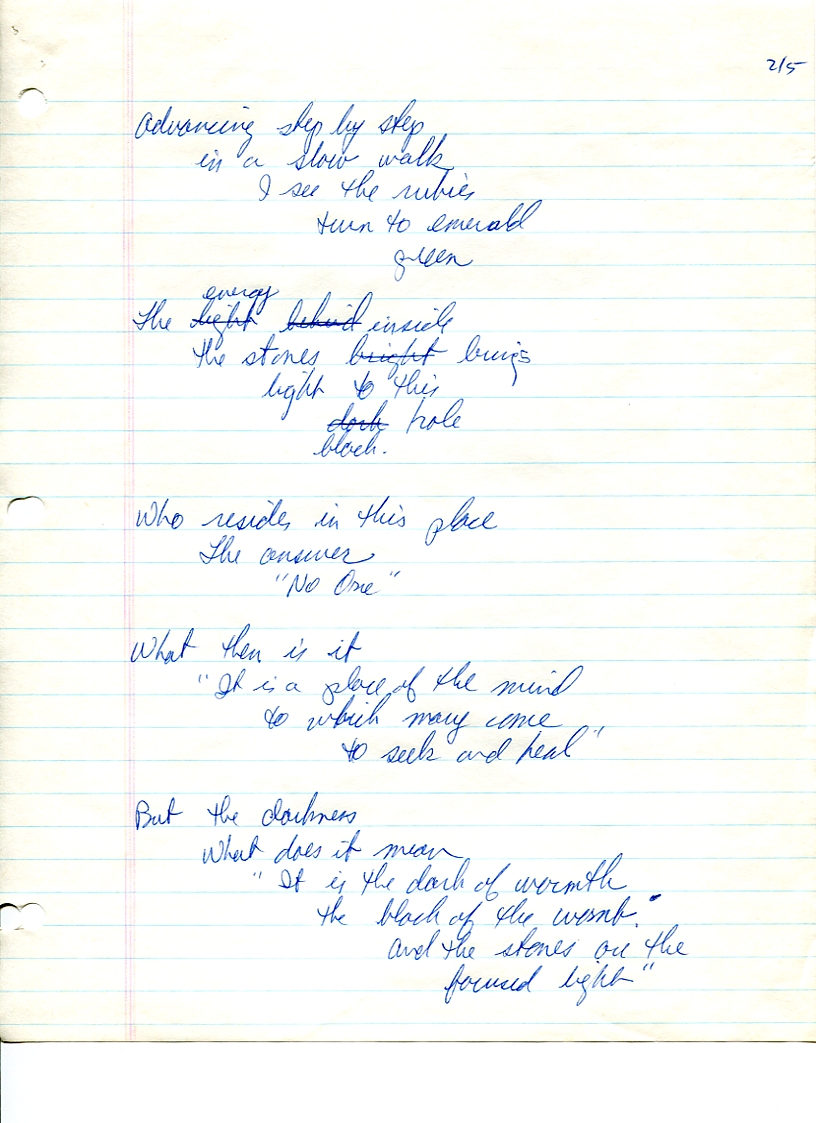 2/5
Advancing step by step
in a slow walk
I see the rubies
turn to emerald
green
energy
The light behind inside
the stones bright brings
light to this
dark hole
black.
Who resides in this place
The answer
"No One"
What then is it
"It is a place of the mind
to which many come
to seek and heal"
But the darkness
What does it mean
"It is the dark of warmth
the black of the womb."
and the stones are the
focused light"